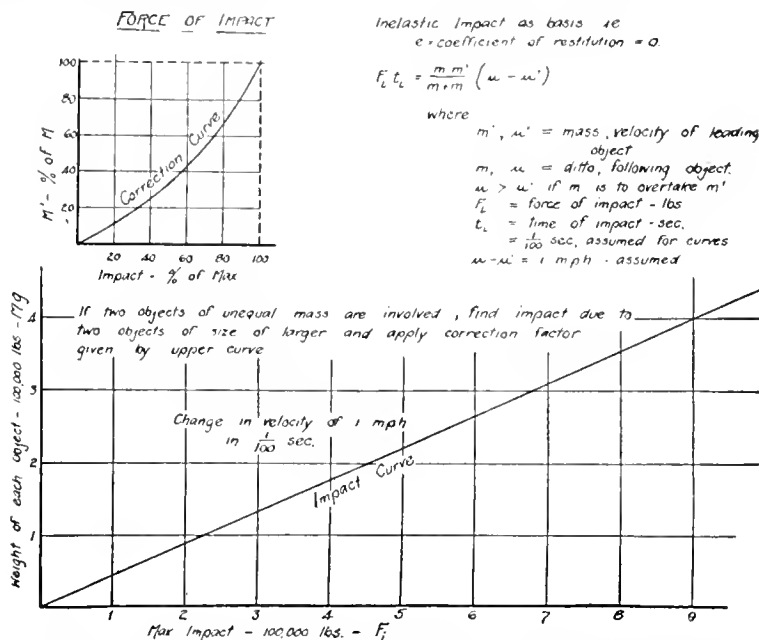 FORCE OF IMPACT
100
80
60
40
20
M' - % of M
Correction Curve
20 40 60 80 100
Impact - % of Max
Inelastic Impact as basis ie
e = coefficient of restitution = 0.
F_i t_i = m m' / m + m' (u - u')
where
m', u' = mass, velocity of leading
object
m, u = ditto, following object.
u > u' if m is to overtake m'
F_i = force of impact - lbs
t_i = time of impact - sec.
= 1/100 sec, assumed for curves
u - u' = 1 mph - assumed
If two objects of unequal mass are involved, find impact due to
two objects of size of larger and apply correction factor
given by upper curve
Change in velocity of 1 mph
in 1/100 sec.
Impact Curve
4
3
2
1
Weight of each object - 100,000 lbs - Mg
0 1 2 3 4 5 6 7 8 9
Max Impact - 100,000 lbs. - F_i